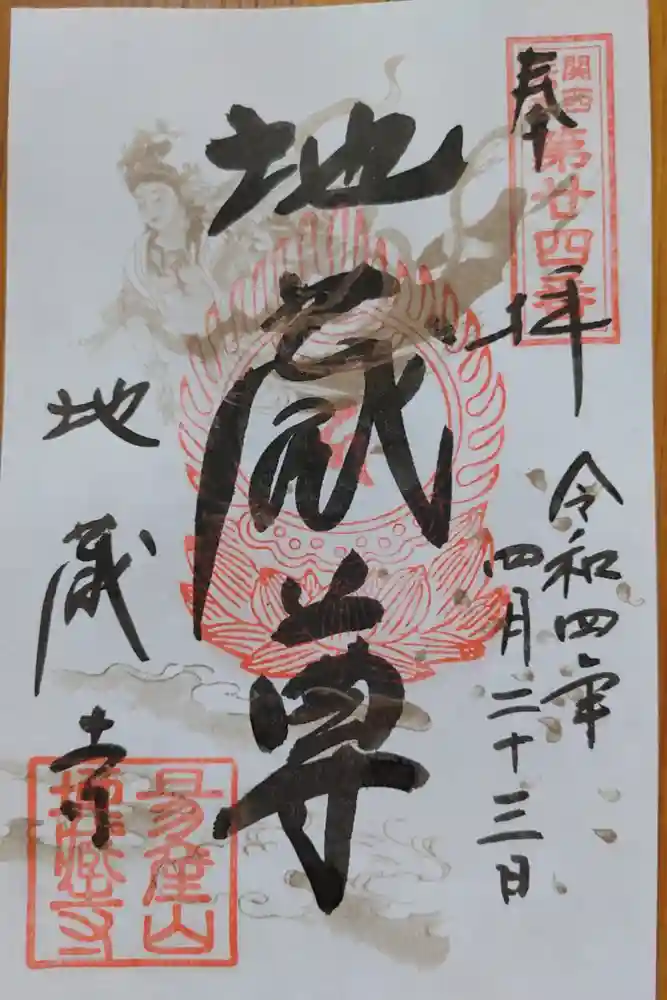 奉拝
関西
第廿四番
令和四年
四月二十三日
地蔵尊
地蔵寺
易産山
地蔵寺